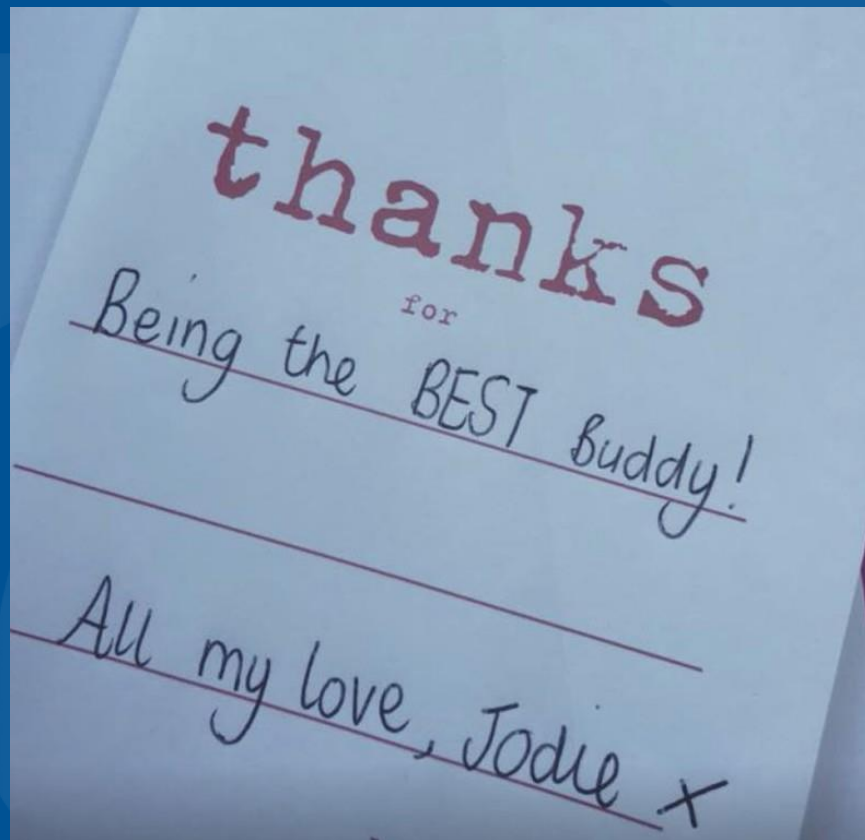 thanks
for
Being the BEST Buddy!
All my love, Jodie x